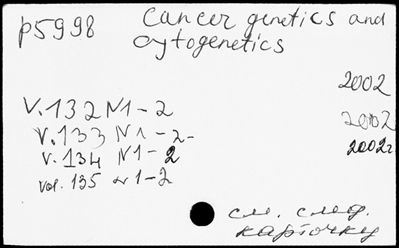 p5998 Cancer genetics and
cytogenetics
2002
V.132 N1-2
2002
V.133 N1-2-
V.134 N1-2 2002г
vol. 135 N1-2
см. след.
карточку